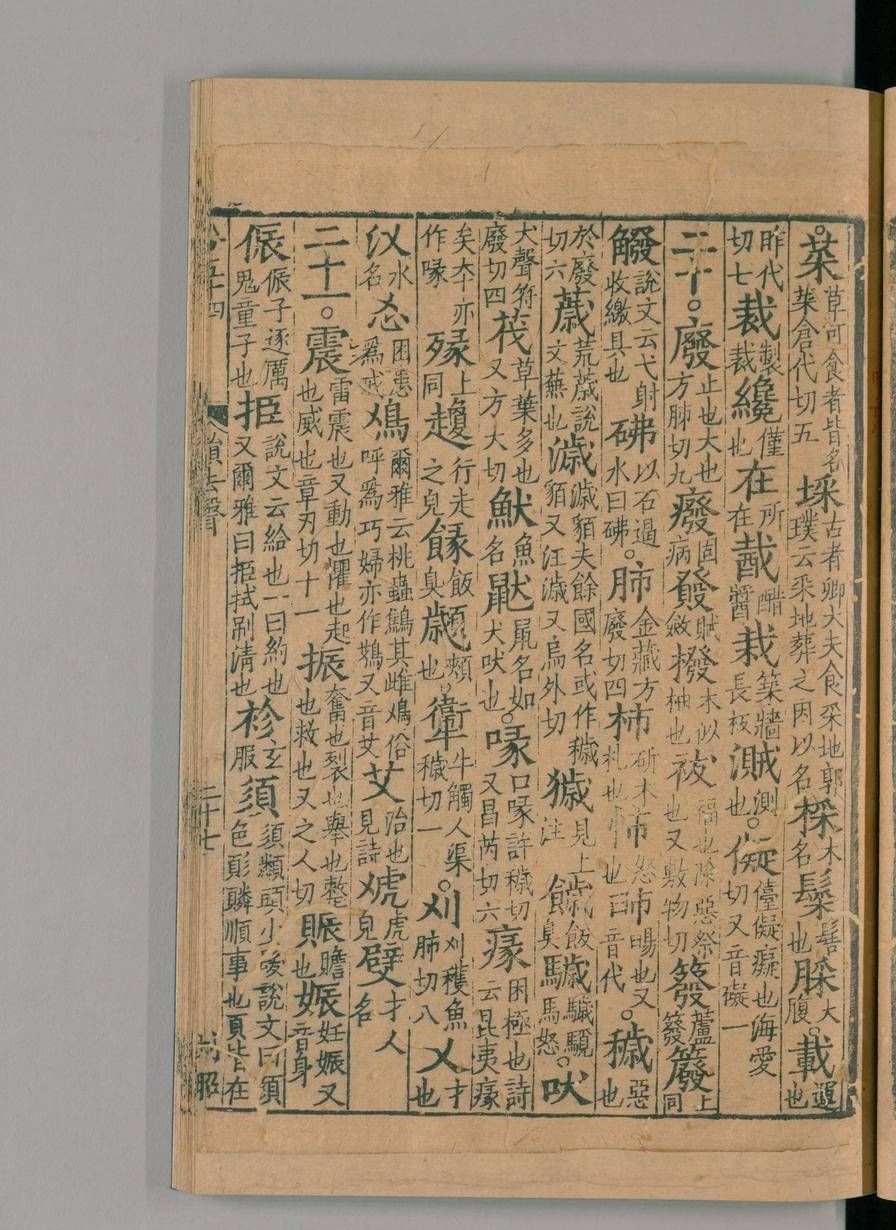 。菜草可食者皆名菜倉代切五埰古者卿大夫食采地郭璞云采地葬之因以名棌木名鬕髻也䐆大腹。載運也
昨代切七裁製裁纔僅也在所在酨醋醬栽築牆長板溨測也。儗儓儗癡也海愛切又音礙一
二十。廢止也大也方肺切九癈固病發賦斂橃木似柚也祓福也除惡祭也又敷物切䇅蘆䉬簾上同
䑔說文云弋射收繳具也砩以石遏水曰砩。肺金藏方廢切四柿斫木札也㤄怒也昲曊也又音代。穢惡也
於廢切六薉荒薉說文蕪也濊濊貊夫餘國名或作穢貊又汪濊又烏外切獩見上注饖飯臭䮹馬怒。吠
犬聲符廢切四茷草葉多也又方大切鮲魚名䶕鼠名如犬吠也。喙口喙許穢切又昌芮切六㾱困極也詩云昆夷㾱
矣本亦作喙㱲上同䞼行走之皃餯飯臭顪頰也。衛牛觸人渠穢切一。刈刈穫魚肺切八乂才也
㲼水名㣻困患爲戒鳼爾雅云桃蟲鷦其雌鳼俗呼爲巧婦亦作鴱又音艾艾治也見詩䖊虎皃嬖才人名
二十一。震雷震也又動也懼也起也威也章刃切十一振奮也裂也舉也整也救也又之人切賑贍也娠妊娠又音身
侲侲子逐厲鬼童子也挋說文云給也一曰約也又爾雅曰挋拭刷清也袗玄服須須䫙頭少髮說文曰須色䫰䚏順事也頁皆在
韻去聲
二十七